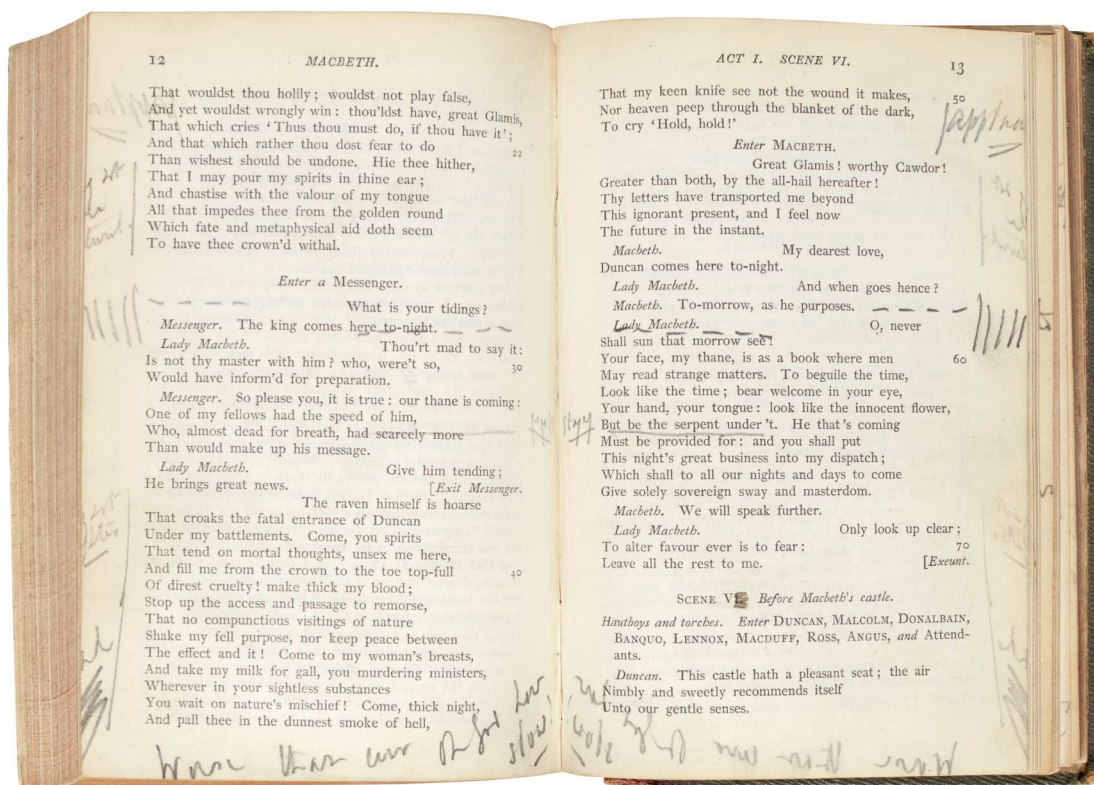 12
MACBETH.
That wouldst thou holily; wouldst not play false,
And yet wouldst wrongly win: thou'ldst have, great Glamis,
That which cries 'Thus thou must do, if thou have it';
And that which rather thou dost fear to do
22
Than wishest should be undone. Hie thee hither,
That I may pour my spirits in thine ear;
And chastise with the valour of my tongue
All that impedes thee from the golden round
Which fate and metaphysical aid doth seem
To have thee crown'd withal.
Enter a Messenger.
What is your tidings?
Messenger. The king comes here to-night.
Lady Macbeth. Thou'rt mad to say it:
Is not thy master with him? who, were't so,
30
Would have inform'd for preparation.
Messenger. So please you, it is true: our thane is coming:
One of my fellows had the speed of him,
Who, almost dead for breath, had scarcely more
Than would make up his message.
Lady Macbeth. Give him tending;
He brings great news. [Exit Messenger.
The raven himself is hoarse
That croaks the fatal entrance of Duncan
Under my battlements. Come, you spirits
That tend on mortal thoughts, unsex me here,
And fill me from the crown to the toe top-full
40
Of direst cruelty! make thick my blood;
Stop up the access and passage to remorse,
That no compunctious visitings of nature
Shake my fell purpose, nor keep peace between
The effect and it! Come to my woman's breasts,
And take my milk for gall, you murdering ministers,
Wherever in your sightless substances
You wait on nature's mischief! Come, thick night,
And pall thee in the dunnest smoke of hell,
low
slow
worse than ever
ACT I. SCENE VI.
13
That my keen knife see not the wound it makes,
50
Nor heaven peep through the blanket of the dark,
To cry 'Hold, hold!'
Enter MACBETH.
Great Glamis! worthy Cawdor!
Greater than both, by the all-hail hereafter!
Thy letters have transported me beyond
This ignorant present, and I feel now
The future in the instant.
Macbeth. My dearest love,
Duncan comes here to-night.
Lady Macbeth. And when goes hence?
Macbeth. To-morrow, as he purposes.
Lady Macbeth. O, never
Shall sun that morrow see!
Your face, my thane, is as a book where men
60
May read strange matters. To beguile the time,
Look like the time; bear welcome in your eye,
Your hand, your tongue: look like the innocent flower,
But be the serpent under't. He that's coming
Must be provided for: and you shall put
This night's great business into my dispatch;
Which shall to all our nights and days to come
Give solely sovereign sway and masterdom.
Macbeth. We will speak further.
Lady Macbeth. Only look up clear;
To alter favour ever is to fear:
70
Leave all the rest to me. [Exeunt.
SCENE VI. Before Macbeth's castle.
Hautboys and torches. Enter DUNCAN, MALCOLM, DONALBAIN,
BANQUO, LENNOX, MACDUFF, ROSS, ANGUS, and Attend-
ants.
Duncan. This castle hath a pleasant seat; the air
Nimbly and sweetly recommends itself
Unto our gentle senses.